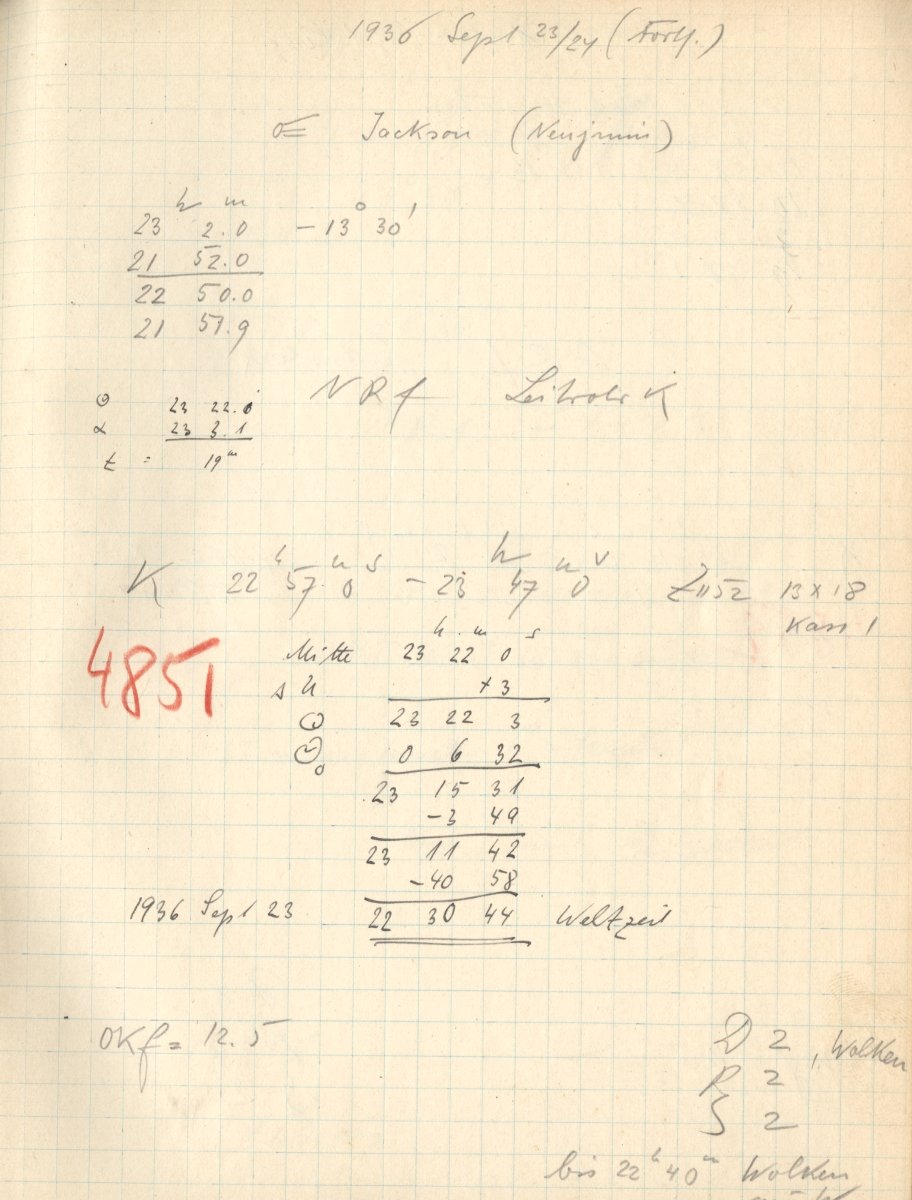 1936 Sept 23/24 (Forts.)
Jackson (Neujmin)
h m
23 2.0 –13° 30'
21 52.0
22 50.0
21 57.9
NRf Leitrohr K
⊙ 23 22.0
α 23 3.1
t = 19ᵐ
K 22ʰ 57ᵐ 0ˢ – 23ʰ 47ᵐ 0ˢ Z1152 13 x 18
Kass 1
4851
h m s
Mitte 23 22 0
s U +3
23 22 3
0 6 32
23 15 31
–3 49
23 11 42
–40 58
1936 Sept 23 22 30 44 Weltzeit
OKf = 12.5
D 2, Wolken
R 2
2
bis 22ʰ 40ᵐ Wolken